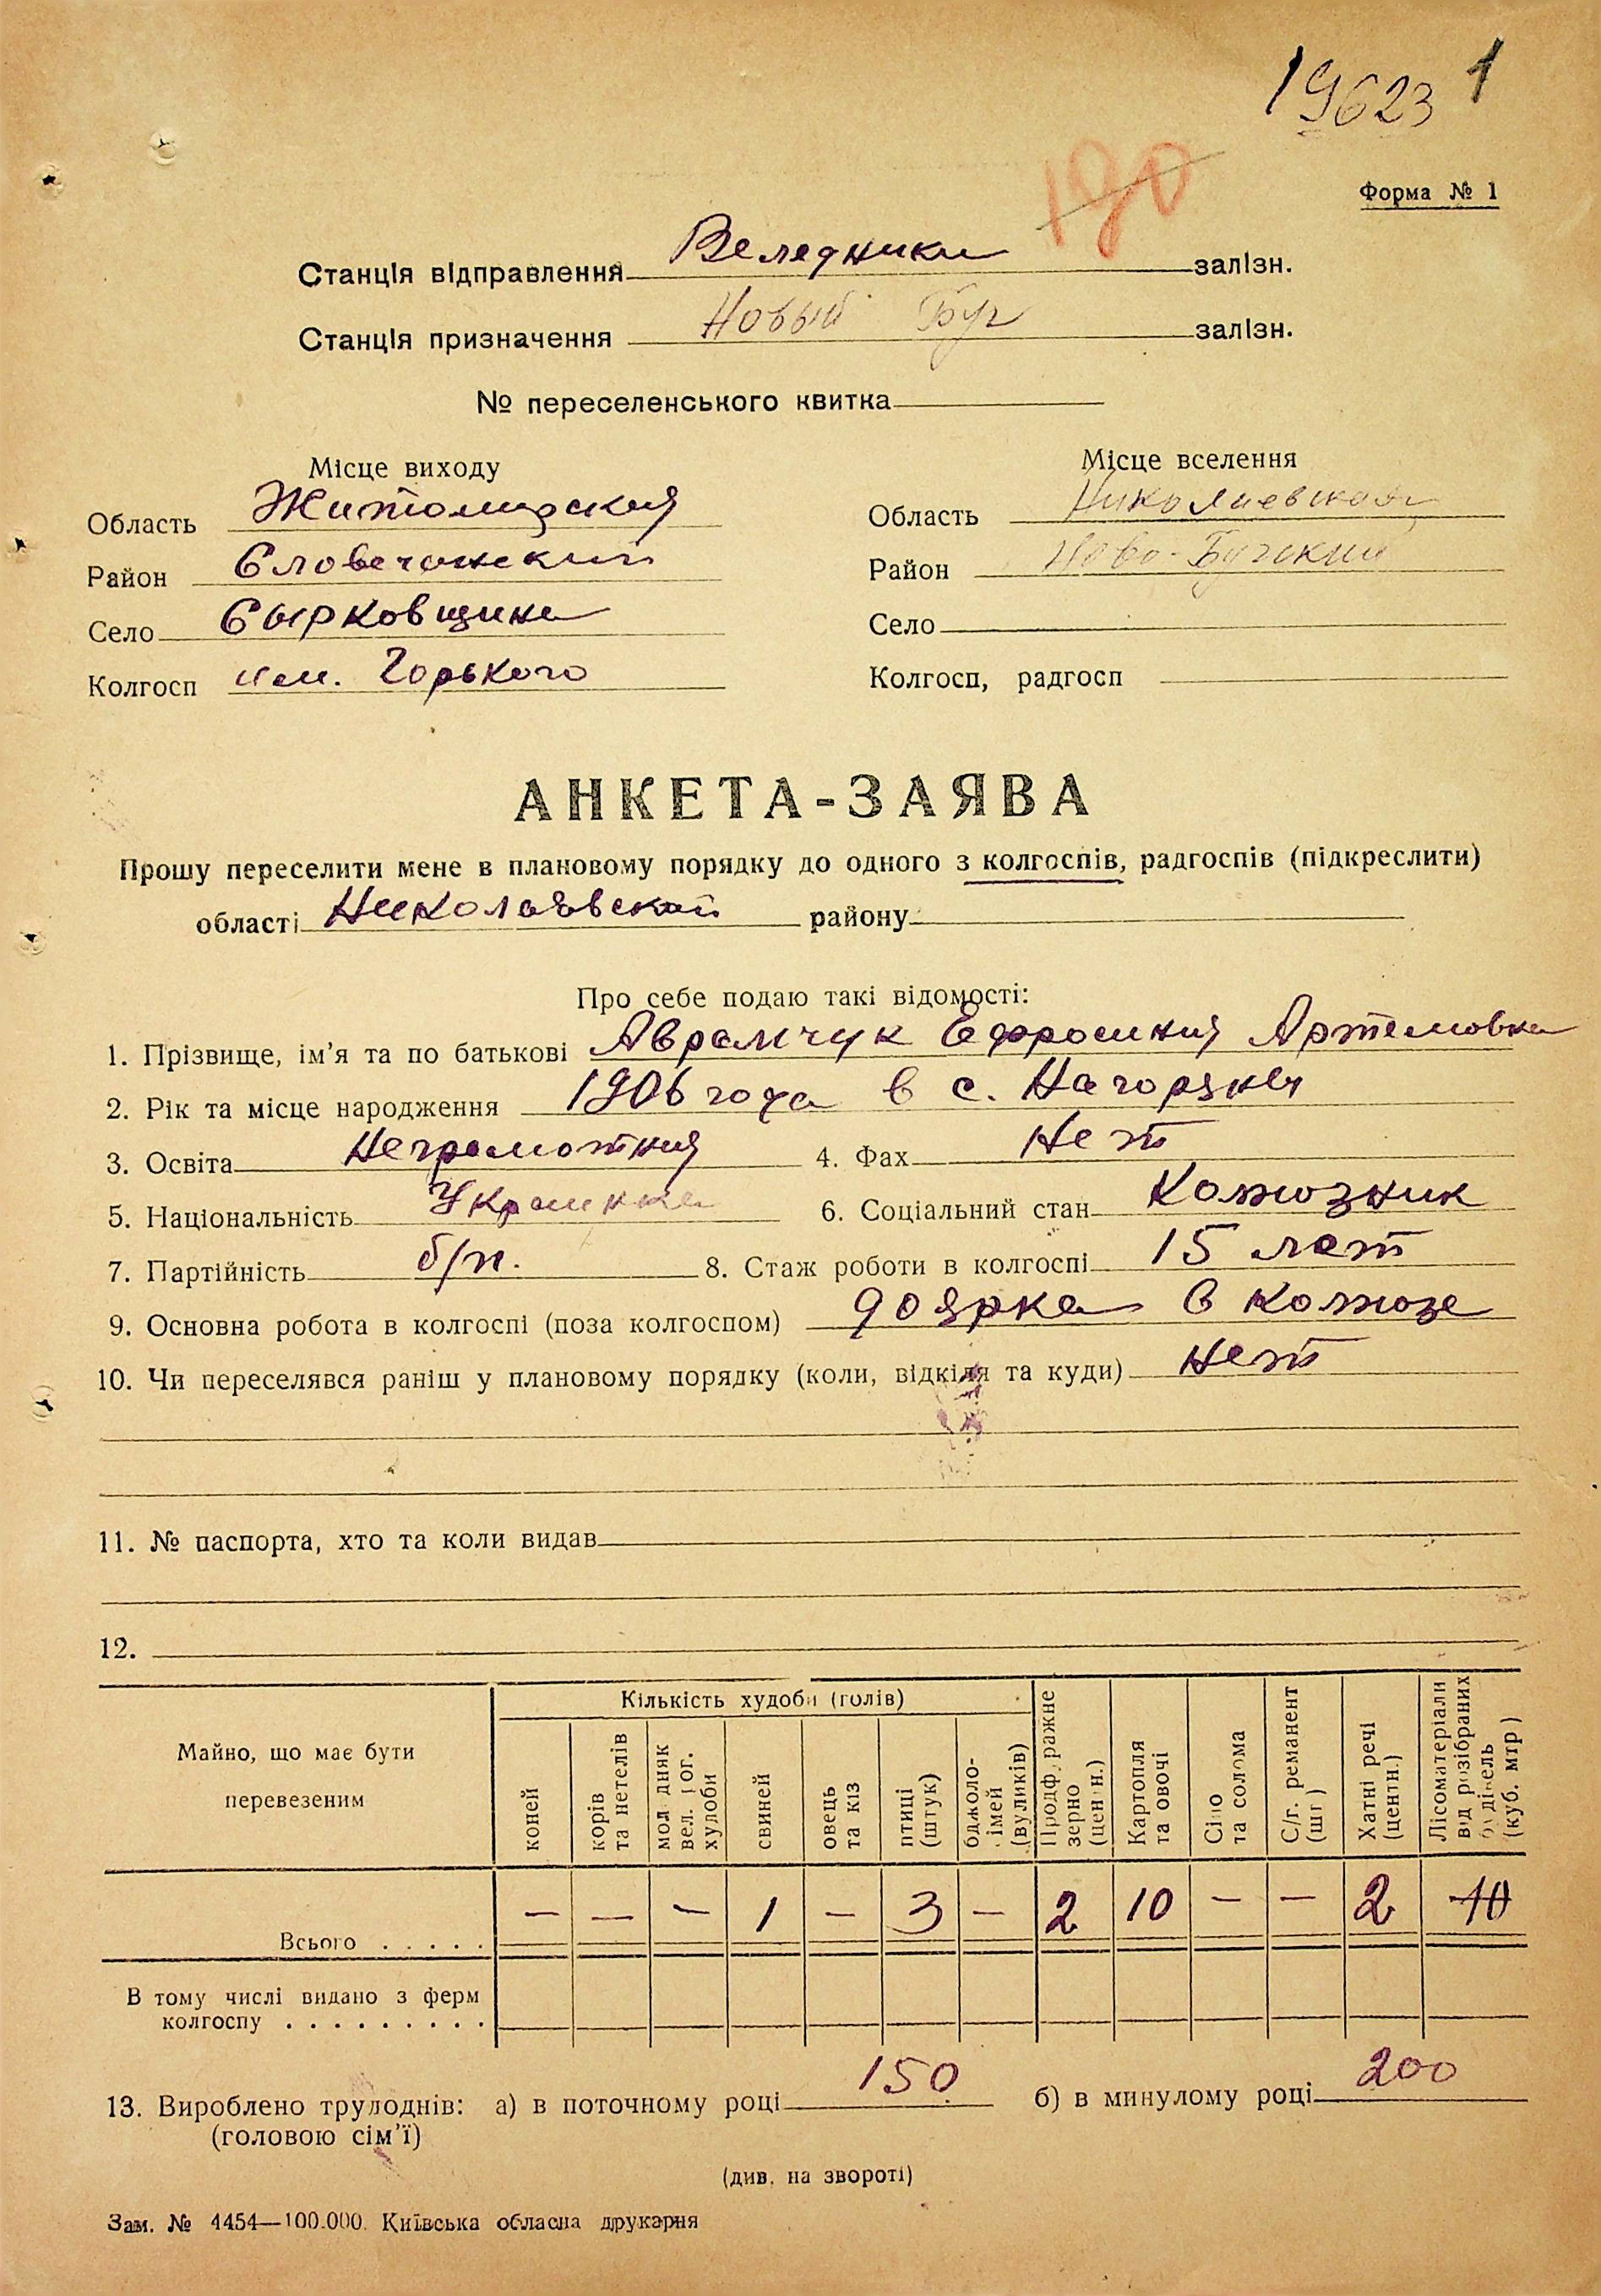 19623 1
190
Форма № 1
Станція відправлення Веледники залізн.
Станція призначення Новый Буг залізн.
№ переселенського квитка
Місце виходу Місце вселення
Область Житомирская Область Николаевская
Район Словечанский Район Ново-Бугский
Село Сырковщина Село
Колгосп им. Горького Колгосп, радгосп
АНКЕТА-ЗАЯВА
Прошу переселити мене в плановому порядку до одного з колгоспів, радгоспів (підкреслити)
області Николаевской району
Про себе подаю такі відомості:
1. Прізвище, ім’я та по батькові Аврамчук Ефросиния Артемовна
2. Рік та місце народження 1906 года в с. Нагоряны
3. Освіта Неграмотная 4. Фах Нет
5. Національність Украинка 6. Соціальний стан Колхозник
7. Партійність б/п. 8. Стаж роботи в колгоспі 15 лет
9. Основна робота в колгоспі (поза колгоспом) доярка в колхозе
10. Чи переселявся раніш у плановому порядку (коли, відкіля та куди) Нет
11. № паспорта, хто та коли видав
12.
Майно, що має бути перевезеним
Кількість худоби (голів)
коней
корів та нетелів
молодняк вел. рог. худоби
свиней
овець та кіз
птиці (штук)
бджоло-сімей (вуликів)
Продфуражне зерно (центн.)
Картопля та овочі
Сіно та солома
С/г. реманент (шт)
Хатні речі (центн.)
Лісоматеріали від розібраних будівель (куб. мтр)
Всього . . . . . — — — 1 — 3 — 2 10 — — 2 10
В тому числі видано з ферм
колгоспу . . . . . . . . .
13. Вироблено трудоднів: а) в поточному році 150 б) в минулому році 200
(головою сім’ї)
(див. на звороті)
Зам. № 4454—100.000. Київська обласна друкарня